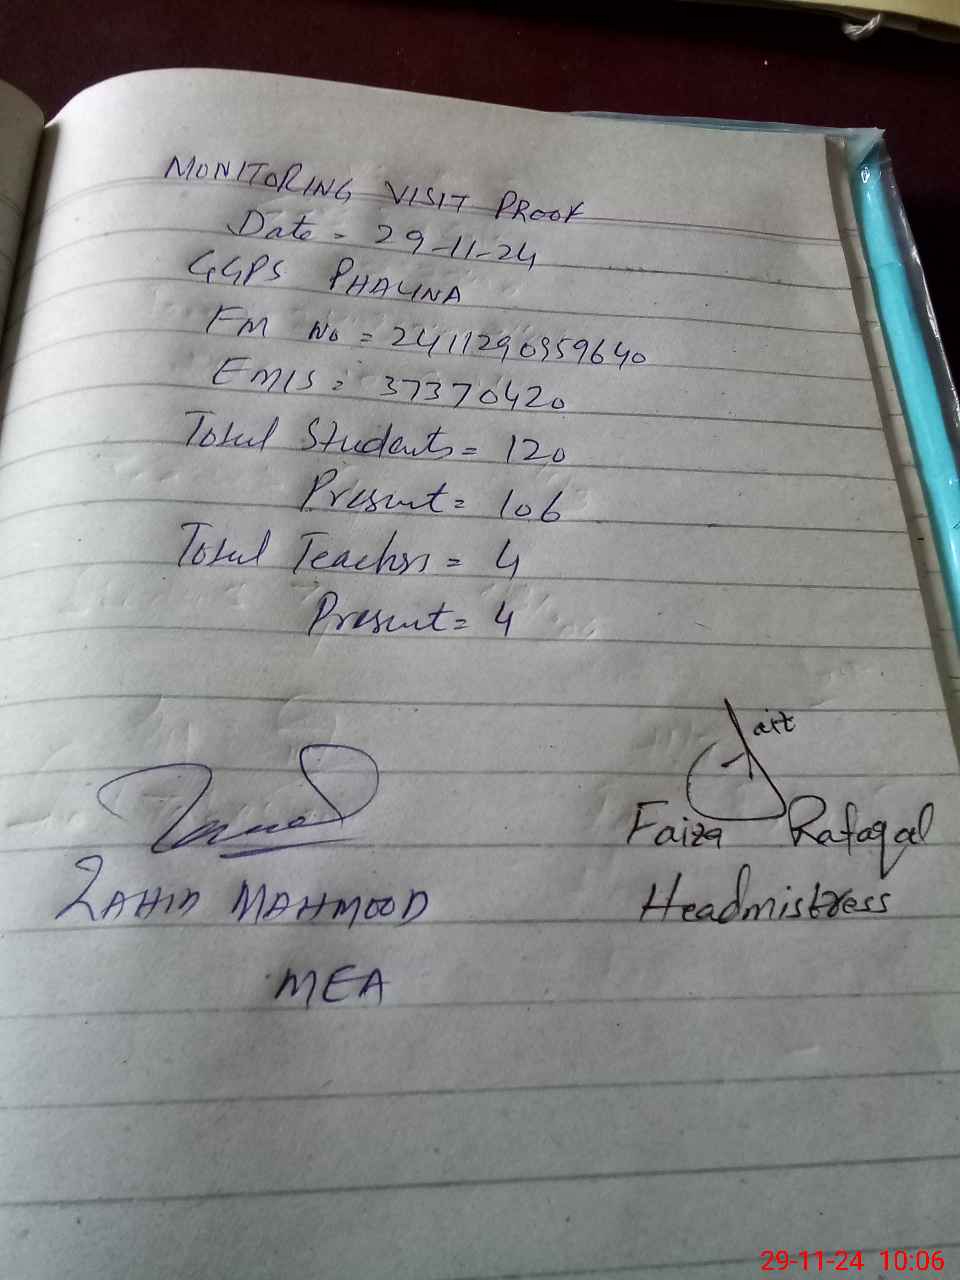 MONITORING VISIT PROOF
Date = 29-11-24
GGPS PHALINA
FM No = 2411290959640
EMIS = 37370420
Total Students = 120
Present = 106
Total Teachers = 4
Present = 4
Faiza Rafaqat
ZAHID MAHMOOD
Headmistress
MEA
29-11-24 10:06